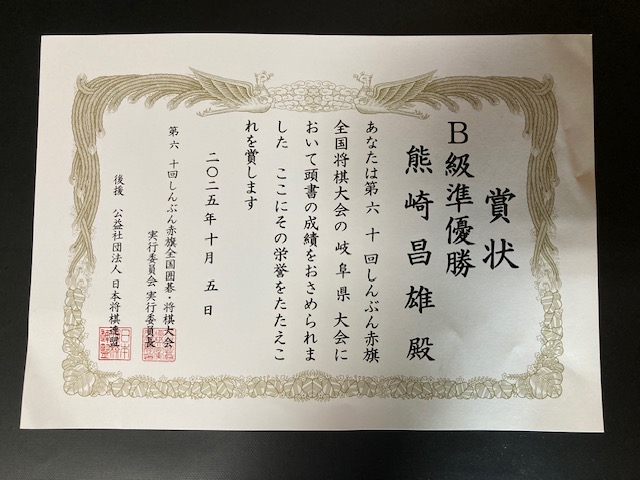 賞状
B級準優勝
熊崎昌雄 殿
あなたは第六十回しんぶん赤旗
全国将棋大会の岐阜県大会に
おいて頭書の成績をおさめられま
した ここにその栄誉をたたえこ
れを賞します
二〇二五年十月五日
第六十回しんぶん赤旗全国囲碁・将棋大会
実行委員会 実行委員長
後援 公益社団法人 日本将棋連盟